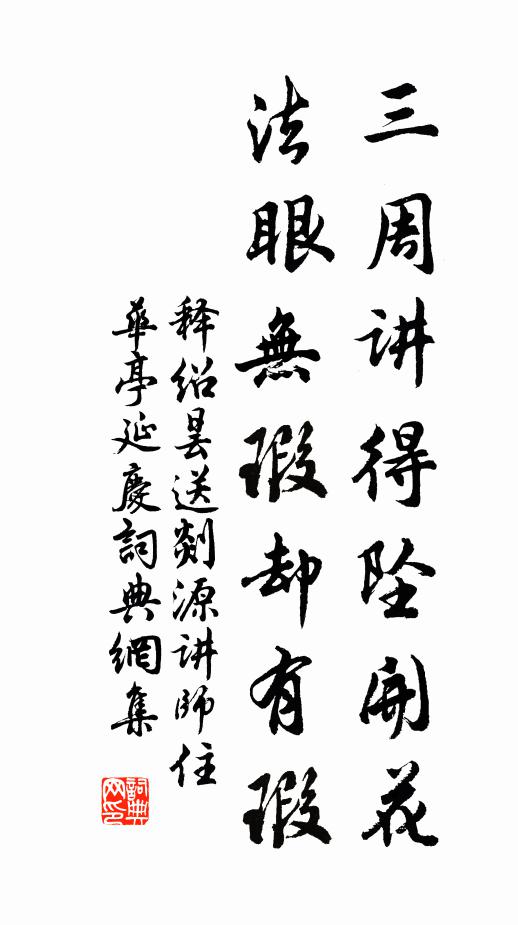 三周讲得坠開花
法眼無瑕却有瑕
释绍昙送剡源讲師住
華亭延慶詞典網集
詞典网印